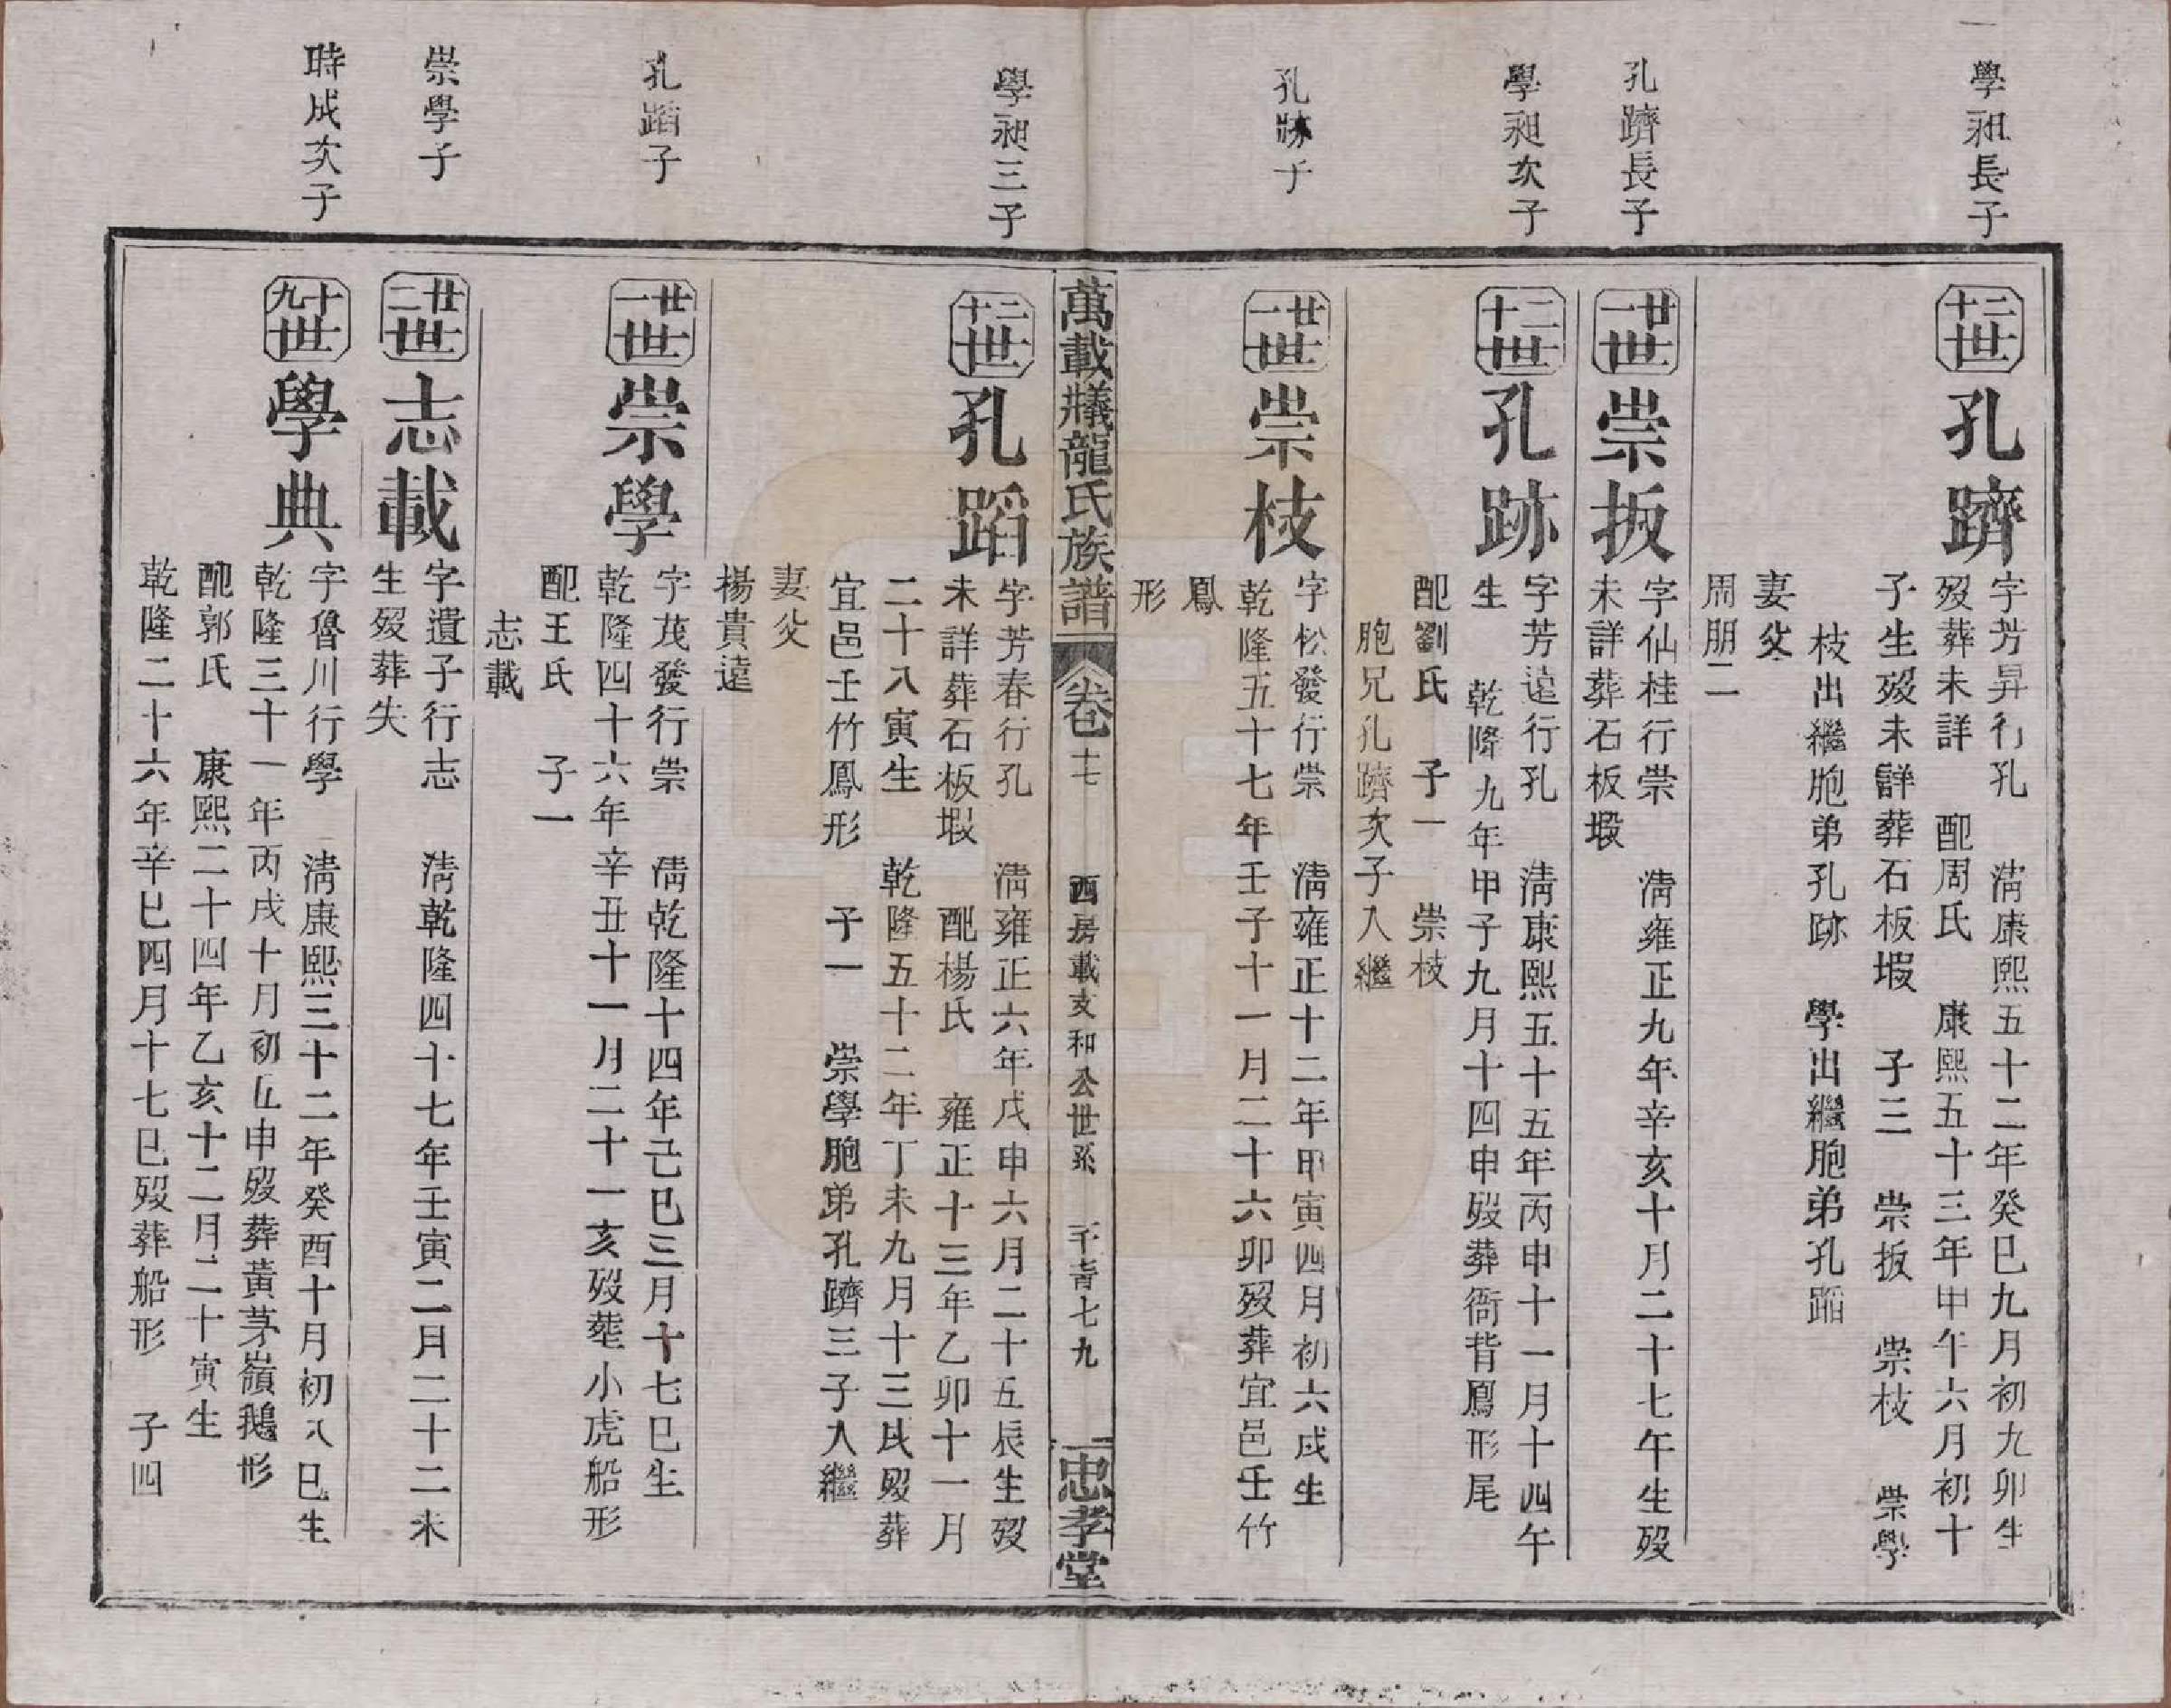 學昶長子
二十世
孔躋
字芳昇行孔 清康熙五十二年癸巳九月初九卯生
歿葬未詳 配周氏 康熙五十三年甲午六月初十
子生歿未詳葬石板塅 子三 崇扳 崇枝 崇學
枝出繼胞弟孔跡 學出繼胞弟孔蹈
妻父
周朋二
孔躋長子
廿一世
崇扳
字仙桂行崇 清雍正九年辛亥十月二十七午生歿
未詳葬石板塅
學昶次子
二十世
孔跡
字芳遠行孔 清康熙五十五年丙申十一月十四午
生 乾隆九年甲子九月十四申歿葬衙背鳳形尾
配劉氏 子一 崇枝
胞兄孔躋次子入繼
孔跡子
廿一世
崇枝
字松發行崇 清雍正十二年甲寅四月初六戌生
乾隆五十七年壬子十一月二十六卯歿葬宜邑壬竹
鳳
形
萬載㸌龍氏族譜 卷十七 西房載支和公世系 千壹七九 忠孝堂
學昶三子
二十世
孔蹈
字芳春行孔 清雍正六年戊申六月二十五辰生歿
未詳葬石板塅 配楊氏 雍正十三年乙卯十一月
二十八寅生 乾隆五十二年丁未九月十三戌歿葬
宜邑壬竹鳳形 子一 崇學胞弟孔躋三子入繼
妻父
楊貴遠
孔蹈子
廿一世
崇學
字茂發行崇 清乾隆十四年己巳三月十七巳生
乾隆四十六年辛丑十一月二十一亥歿葬小虎船形
配王氏 子一
志載
崇學子
廿二世
志載
字遺子行志 清乾隆四十七年壬寅二月二十二未
生歿葬失
時成次子
十九世
學典
字魯川行學 清康熙三十二年癸酉十月初八巳生
乾隆三十一年丙戌十月初五申歿葬黃茅嶺鵝形
配郭氏 康熙二十四年乙亥十二月二十寅生
乾隆二十六年辛巳四月十七巳歿葬船形 子四